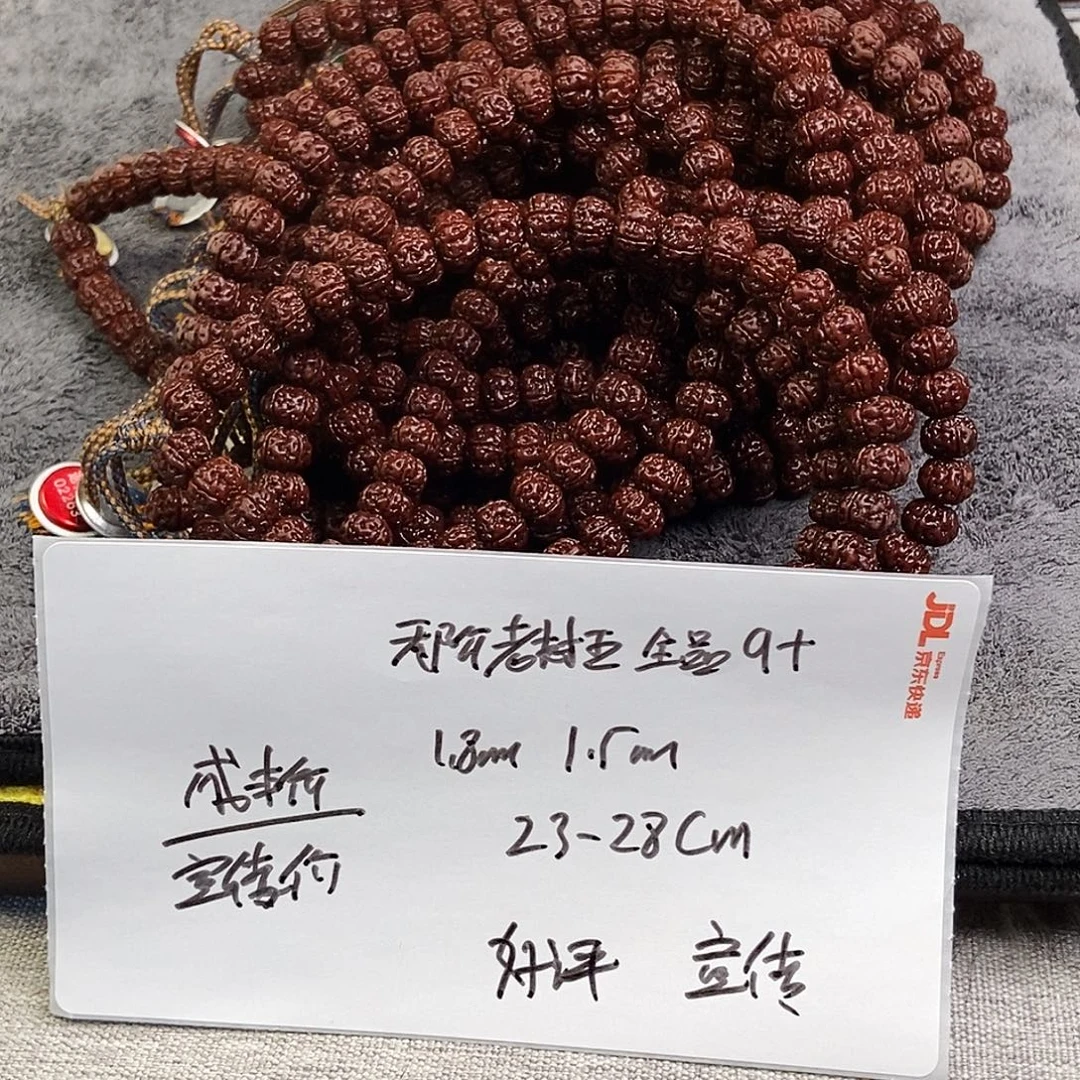 老树王 全品 9+
1.8cm 1.5cm
成本价
宣传价
23-28Cm
好评 宣传
JDL
Express
京东快递